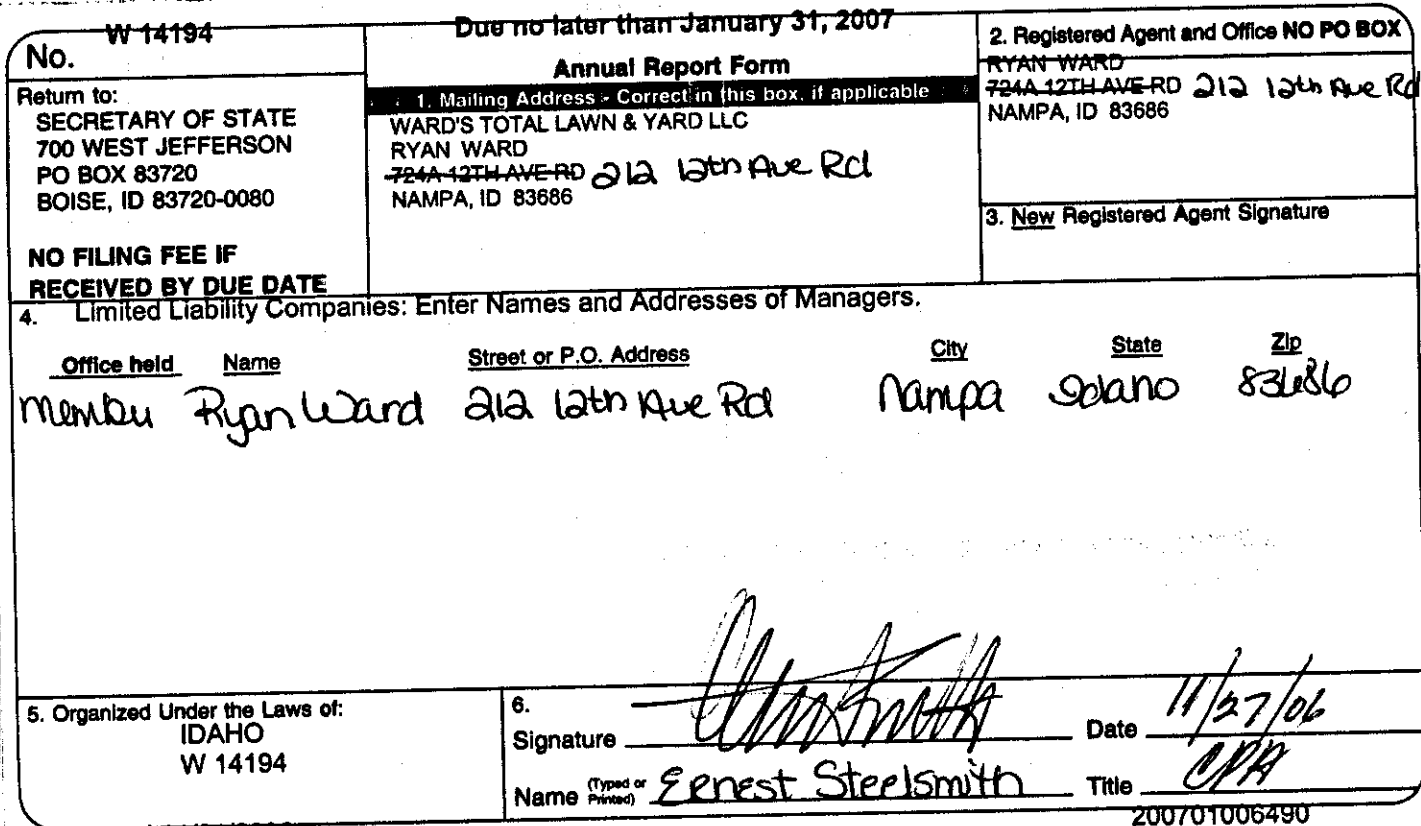 No. W 14194
Return to:
SECRETARY OF STATE
700 WEST JEFFERSON
PO BOX 83720
BOISE, ID 83720-0080
NO FILING FEE IF
RECEIVED BY DUE DATE
Due no later than January 31, 2007
Annual Report Form
1. Mailing Address - Correct in this box, if applicable
WARD'S TOTAL LAWN & YARD LLC
RYAN WARD
724A 12TH AVE RD 212 12th Ave Rd
NAMPA, ID 83686
2. Registered Agent and Office NO PO BOX
RYAN WARD
724A 12TH AVE RD 212 12th Ave Rd
NAMPA, ID 83686
3. New Registered Agent Signature
4. Limited Liability Companies: Enter Names and Addresses of Managers.
Office held Name Street or P.O. Address City State Zip
Member Ryan Ward 212 12th Ave Rd Nampa Idaho 83686
5. Organized Under the Laws of:
IDAHO
W 14194
6.
Signature Date 11/27/06
Name (Typed or Printed) Ernest Steelsmith Title CPA
200701006490